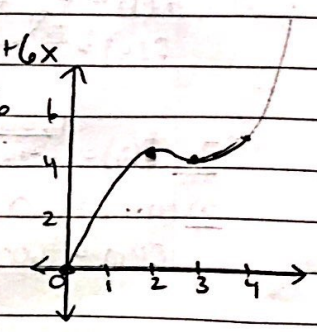 +6x
6
4
2
0 1 2 3 4